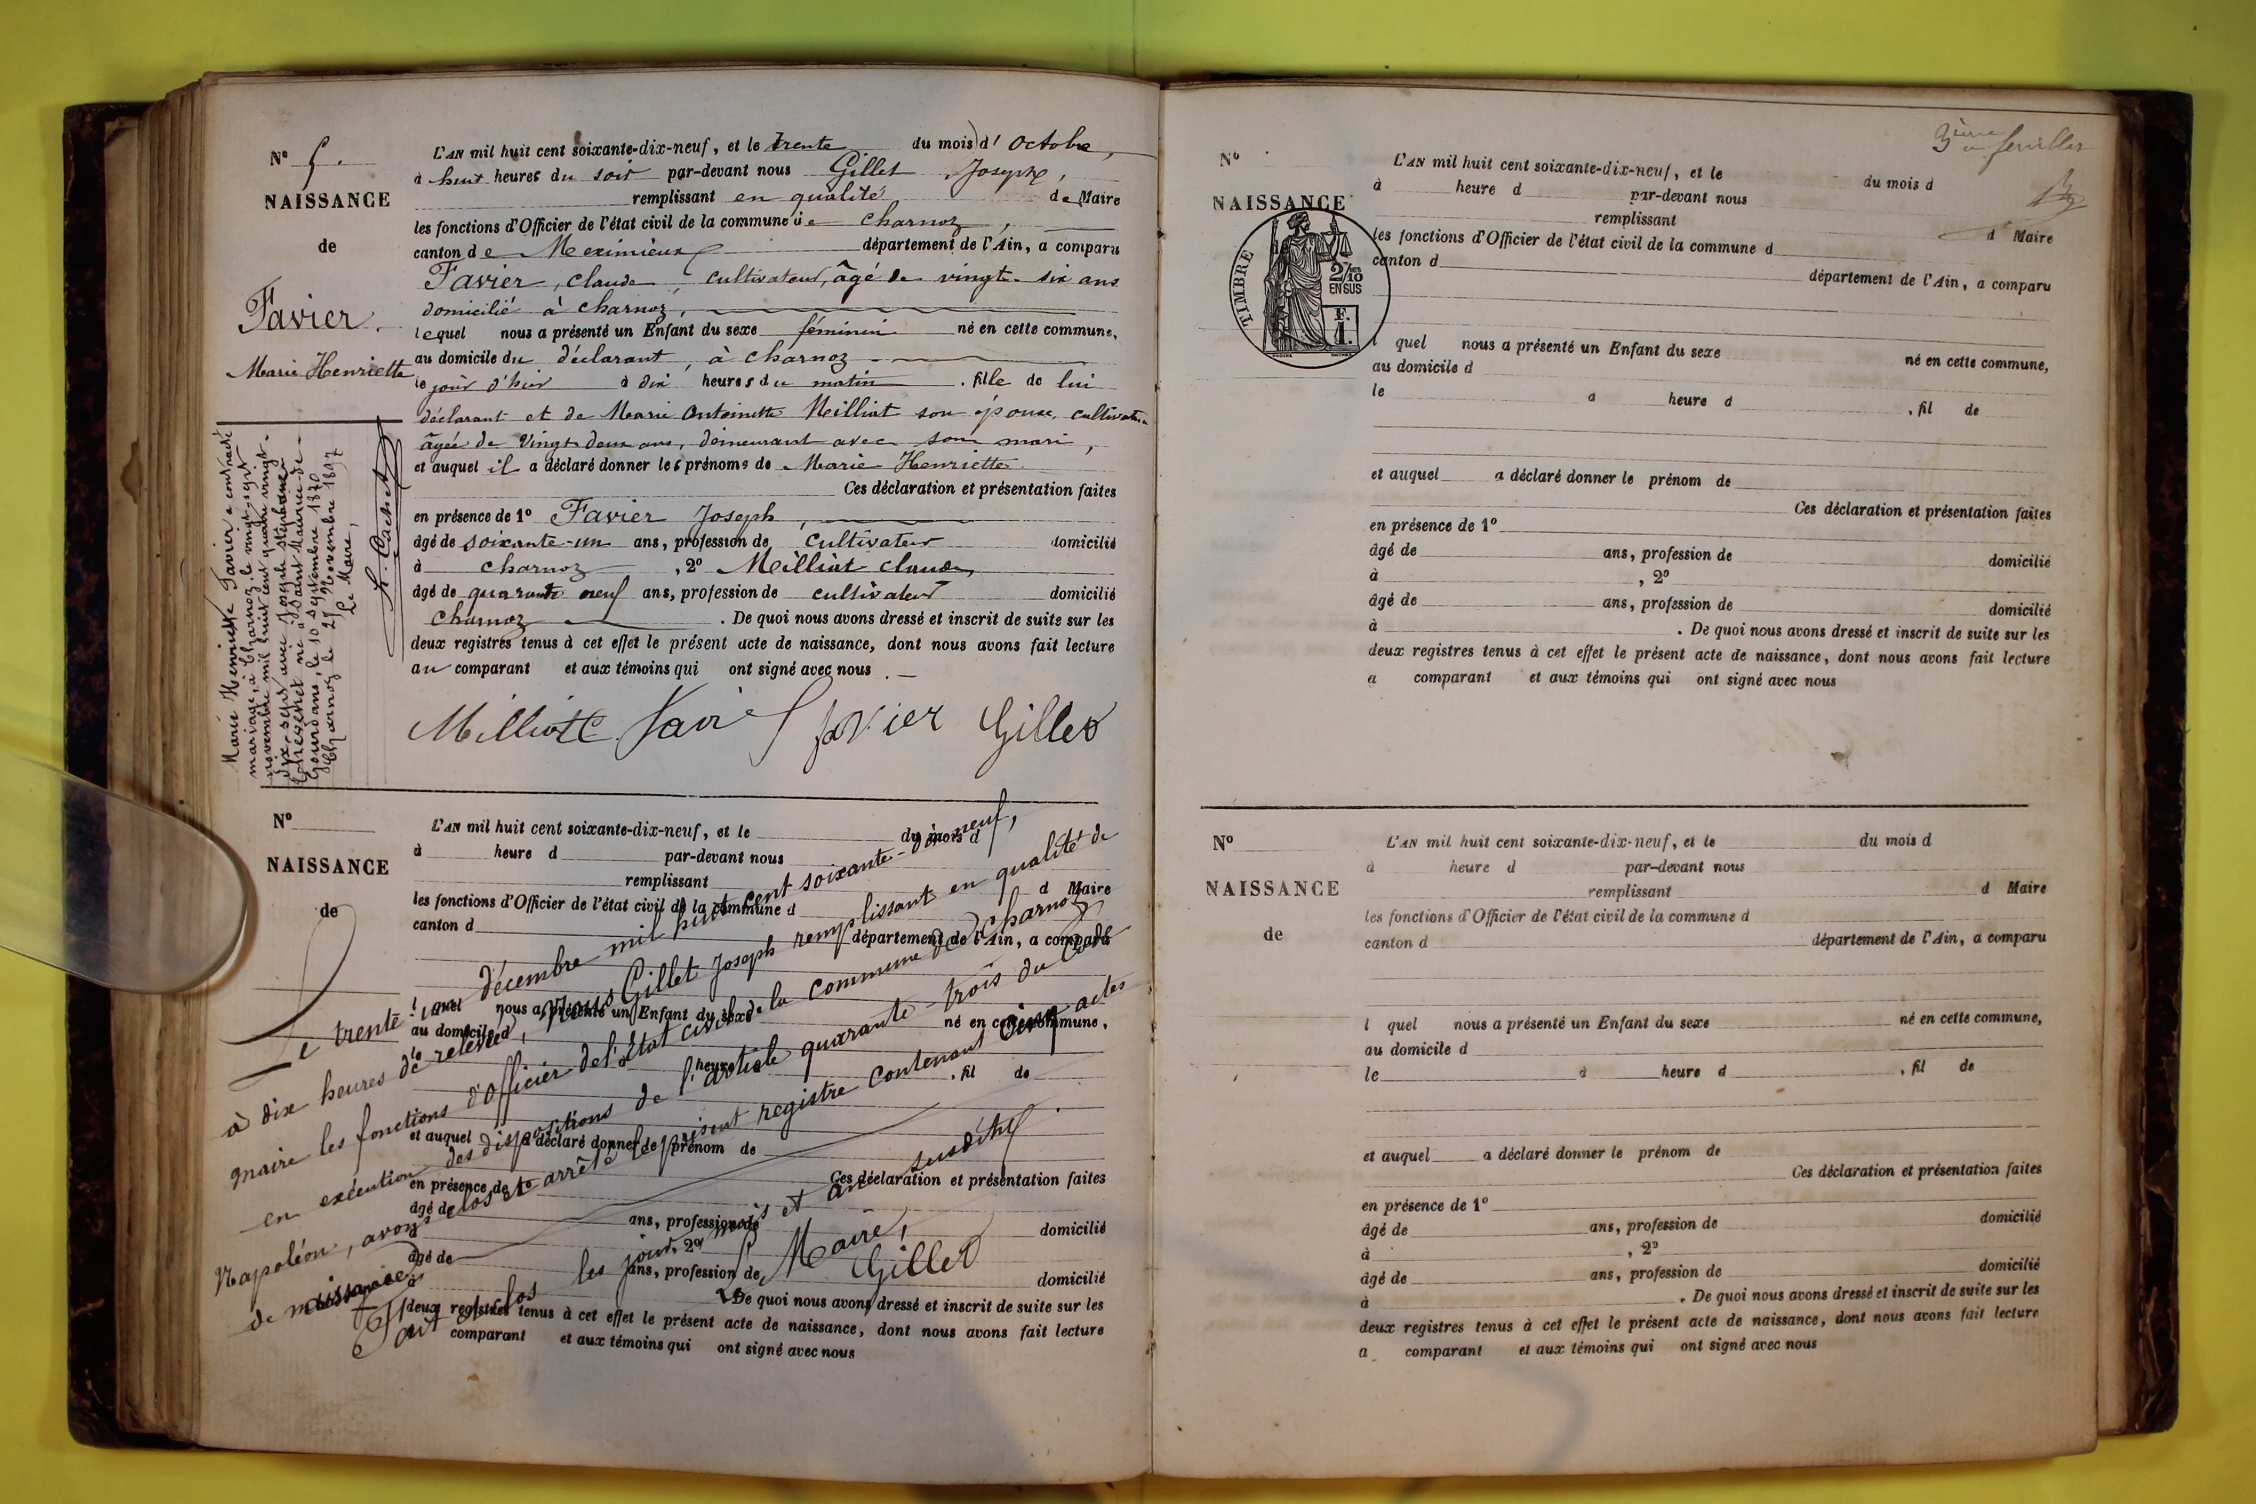 N° 5.
NAISSANCE
de
Favier.
Marie Henriette
L'AN mil huit cent soixante-dix-neuf, et le trente du mois d'octobre,
à huit heures du soir par-devant nous Gillet Joseph,
remplissant en qualité de Maire
les fonctions d'Officier de l'état civil de la commune de Charnoz,
canton de Meximieux département de l'Ain, a comparu
Favier, claude, cultivateur, âgé de vingt-six ans
domicilié à Charnoz,
lequel nous a présenté un Enfant du sexe féminin né en cette commune,
au domicile du déclarant, à charnoz
le jour d'hier à dix heures du matin, fille de lui
déclarant et de Marie Antoinette Milliat son épouse, cultivatrice
âgée de vingt deux ans, demeurant avec son mari,
et auquel il a déclaré donner les prénoms de Marie Henriette
Ces déclaration et présentation faites
en présence de 1° Favier Joseph,
âgé de soixante-un ans, profession de cultivateur domicilié
à charnoz, 2° Milliat claude,
âgé de quarante neuf ans, profession de cultivateur domicilié
charnoz. De quoi nous avons dressé et inscrit de suite sur les
deux registres tenus à cet effet le présent acte de naissance, dont nous avons fait lecture
au comparant et aux témoins qui ont signé avec nous.
Favier Gillet
Marie Henriette Favier a contracté
mariage, à Charnoz le vingt-sept
novembre mil huit cent quatre vingt-
dix-sept avec Joseph Stéphane
né à Saint Maurice-de-
Gourdans, le 10 septembre 1870
Charnoz le 27 Novembre 1897
Le Maire,
N°
NAISSANCE
de
L'AN mil huit cent soixante-dix-neuf, et le du mois d
à heure d par-devant nous
remplissant d Maire
les fonctions d'Officier de l'état civil de la commune d
canton d département de l'Ain, a comparu
l quel nous a présenté un Enfant du sexe né en cette commune,
au domicile d
le à heure d , fil de
et auquel a déclaré donner le prénom de
Ces déclaration et présentation faites
en présence de 1°
âgé de ans, profession de domicilié
à , 2°
âgé de ans, profession de domicilié
à . De quoi nous avons dressé et inscrit de suite sur les
deux registres tenus à cet effet le présent acte de naissance, dont nous avons fait lecture
comparant et aux témoins qui ont signé avec nous
Le trente-un décembre mil huit cent soixante-dix-neuf,
à dix heures de relevée, Nous Gillet Joseph remplissant en qualité de
maire les fonctions d'Officier de l'état civil de la commune de Charnoz
en exécution des dispositions de l'article quarante-trois du Code
Napoléon, avons clos et arrêté le présent registre contenant cinq actes
de naissance
Fait et clos les jour, mois et an susdits
Le Maire,
Gillet
3ème feuillet
N°
NAISSANCE
TIMBRE
2/10
EN SUS
F.
1.
L'AN mil huit cent soixante-dix-neuf, et le du mois d
à heure d par-devant nous
remplissant d Maire
les fonctions d'Officier de l'état civil de la commune d
canton d département de l'Ain, a comparu
l quel nous a présenté un Enfant du sexe né en cette commune,
au domicile d
le a heure d , fil de
et auquel a déclaré donner le prénom de
Ces déclaration et présentation faites
en présence de 1°
âgé de ans, profession de domicilié
à , 2°
âgé de ans, profession de domicilié
à . De quoi nous avons dressé et inscrit de suite sur les
deux registres tenus à cet effet le présent acte de naissance, dont nous avons fait lecture
a comparant et aux témoins qui ont signé avec nous
N°
NAISSANCE
de
L'AN mil huit cent soixante-dix-neuf, et le du mois d
à heure d par-devant nous
remplissant d Maire
les fonctions d'Officier de l'état civil de la commune d
canton d département de l'Ain, a comparu
l quel nous a présenté un Enfant du sexe né en cette commune,
au domicile d
le à heure d , fil de
et auquel a déclaré donner le prénom de
Ces déclaration et présentation faites
en présence de 1°
âgé de ans, profession de domicilié
à , 2°
âgé de ans, profession de domicilié
à . De quoi nous avons dressé et inscrit de suite sur les
deux registres tenus à cet effet le présent acte de naissance, dont nous avons fait lecture
a comparant et aux témoins qui ont signé avec nous